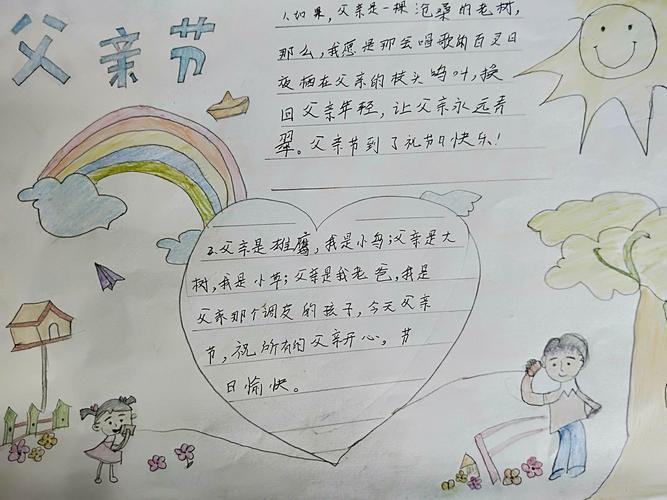 父亲节
1.如果,父亲是一棵沧桑的老树,
那么,我愿是那会唱歌的百灵日
夜栖在父亲的枝头鸣叫,换
回父亲年轻,让父亲永远青
翠。父亲节到了礼节日快乐!
2.父亲是雄鹰,我是小鸟;父亲是大
树,我是小草;父亲是我老爸,我是
父亲那个调皮的孩子,今天父亲
节,祝所有的父亲开心,节
日愉快。